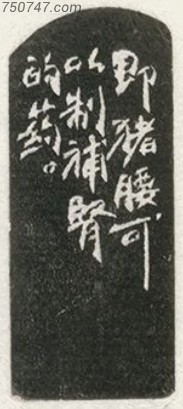 750747.com
即猪腰可
以制補腎
的药。